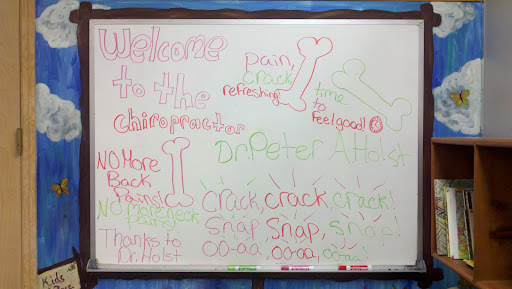 Welcome
to the
chiropractor
pain,
crack
refreshing!
time
to
feel good!
Dr. Peter A Holst
NO More
Back
Pains!
NO more neck
Pains!
Thanks to
Dr. Holst
Crack, crack, crack!
Snap Snap, Snap!
oo-aa, oo-aa, oo-aa!
Kids